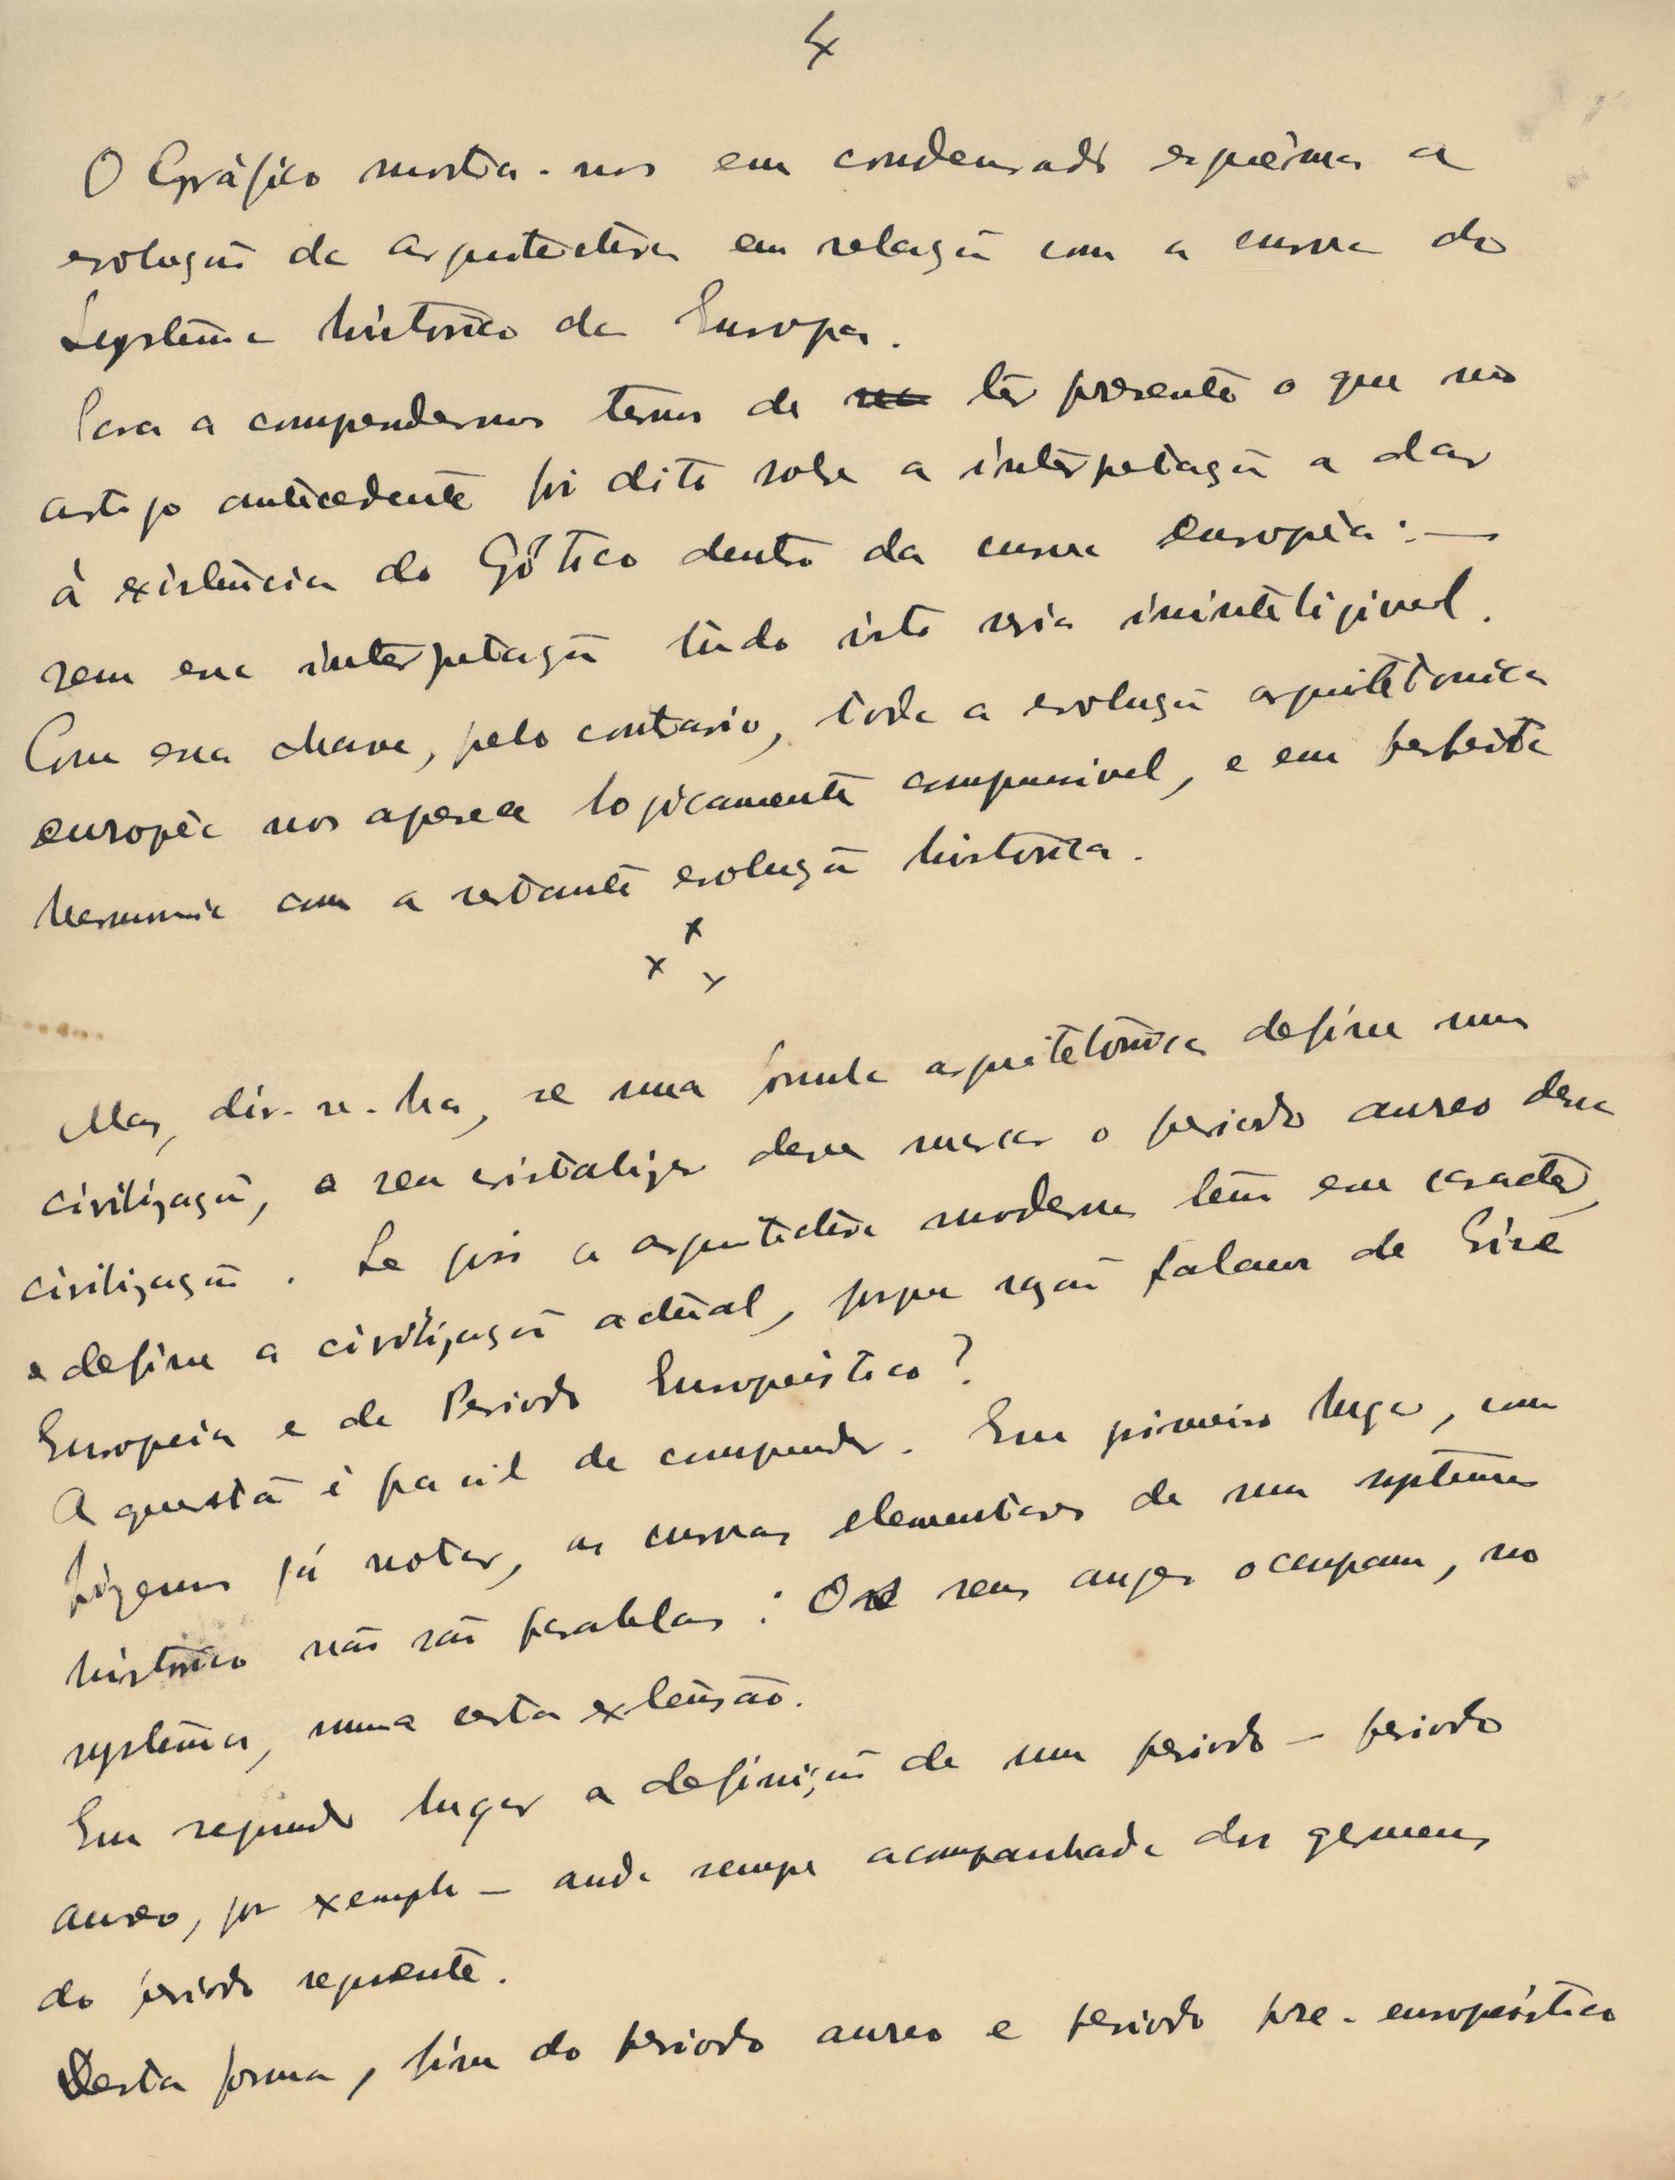 4
O Gráfico mostra-nos em condensado esquêma a
evolução da arquitectura em relação com a curva do
Systêma historico da Europa.
Para a compendermos temos de ter presente o que no
artigo antecedente foi dito sobre a interpetação a dar
á existência do Gótico dentro da curva européa: —
sem essa interpetação tudo isto seria ininteligivel.
Com essa chave, pelo contrario, toda a evolução arquitetonica
européa nos aparece logicamente compensivel, e em perfeita
harmonia com a restante evolução historica.
x
x x
Mas, dir-se-ha, se uma fórmula arquitetónica define uma
civilização, o seu cristalizar deve marcar o periodo aureo dessa
civilização. Se pois a arquitectura moderna têm esse caracter,
e define a civilização actual, porque razão falamos de Crise
Europeia e de Periodo Europeistico?
A questão é facil de compender. Em primeiro lugar, como
fizemos já notar, as curvas elementares de um systema
histórico não são paralelas: Os seus auges ocupam, no
systêma, numa certa extensão.
Em segundo lugar a definição de um periodo — periodo
aureo, por exemplo — anda sempre acompanhada dos germens
do periodo seguente.
Desta forma, fim do periodo aureo e periodo pre-europeístico